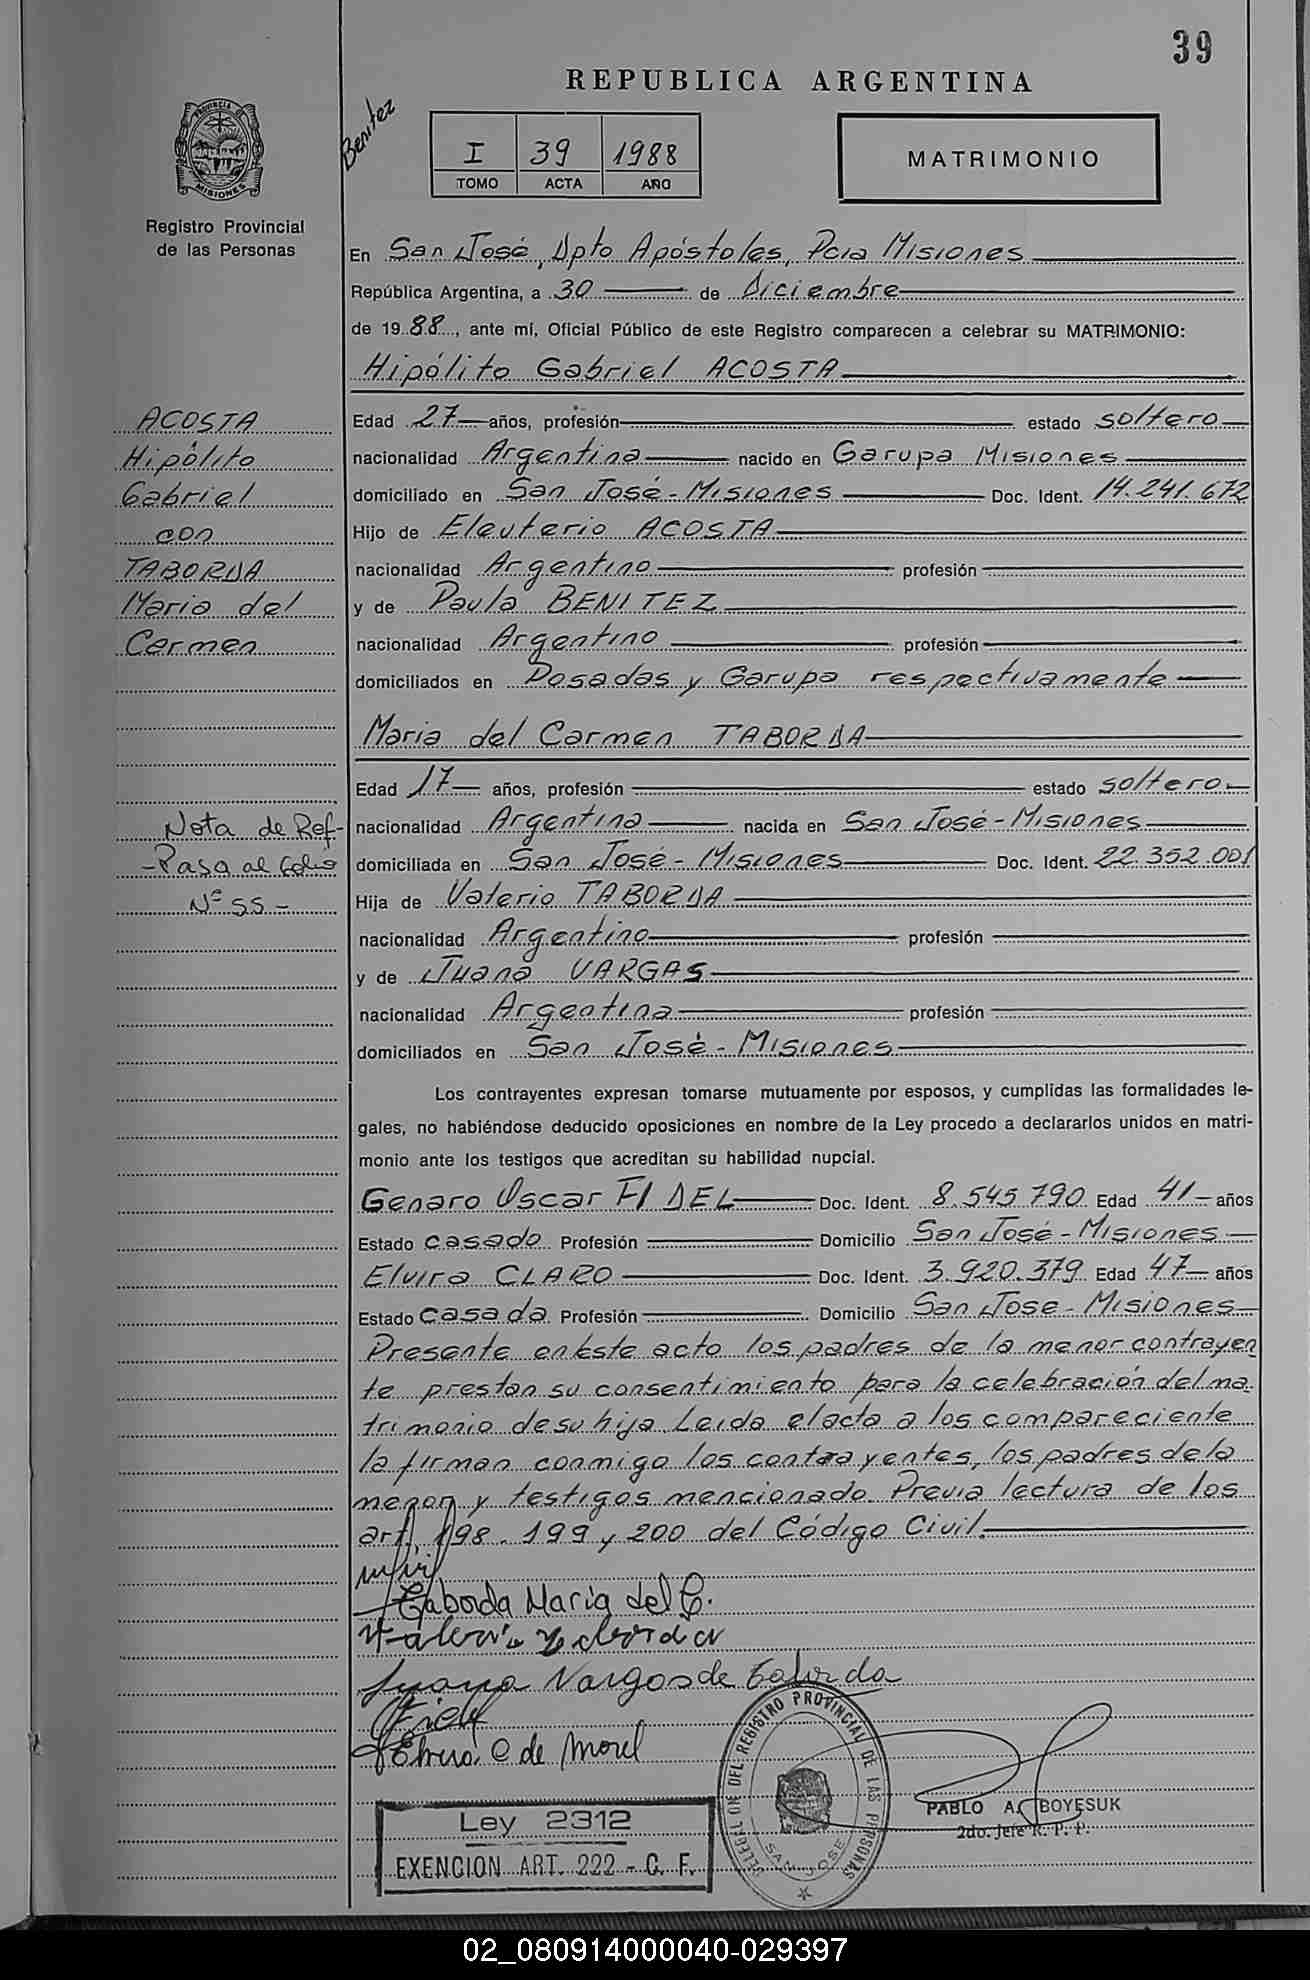 39
REPUBLICA ARGENTINA
Benitez
PROVINCIA DE MISIONES
Registro Provincial
de las Personas
I 39 1988
TOMO ACTA AÑO
MATRIMONIO
En San José, Dpto Apóstoles, Pcia Misiones
República Argentina, a 30 de Diciembre
de 1988, ante mí, Oficial Público de este Registro comparecen a celebrar su MATRIMONIO:
Hipólito Gabriel ACOSTA
ACOSTA
Hipólito
Gabriel
con
TABORDA
Maria del
Carmen
Edad 27 años, profesión estado soltero
nacionalidad Argentina nacido en Garupa Misiones
domiciliado en San José - Misiones Doc. Ident. 14.241.672
Hijo de Eleuterio ACOSTA
nacionalidad Argentino profesión
y de Paula BENITEZ
nacionalidad Argentino profesión
domiciliados en Posadas y Garupa respectivamente
Maria del Carmen TABORDA
Edad 17 años, profesión estado soltero
Nota de Ref-
-Pasa al folio
Nº 55 -
nacionalidad Argentina nacida en San José - Misiones
domiciliada en San José - Misiones Doc. Ident. 22.352.001
Hija de Valerio TABORDA
nacionalidad Argentino profesión
y de Juana VARGAS
nacionalidad Argentina profesión
domiciliados en San José - Misiones
Los contrayentes expresan tomarse mutuamente por esposos, y cumplidas las formalidades le-
gales, no habiéndose deducido oposiciones en nombre de la Ley procedo a declararlos unidos en matri-
monio ante los testigos que acreditan su habilidad nupcial.
Genaro Oscar FIDEL Doc. Ident. 8.545.790 Edad 41 años
Estado casado Profesión Domicilio San José - Misiones
Elvira CLARO Doc. Ident. 3.920.379 Edad 47 años
Estado casada Profesión Domicilio San Jose - Misiones
Presente en este acto los padres de la menor contrayen
te prestan su consentimiento para la celebración del ma
trimonio de su hija. Leida el acta a los compareciente
la firman conmigo los contrayentes, los padres de la
menor y testigos mencionado. Previa lectura de los
art. 198. 199 y 200 del Código Civil.
Taborda Maria del C.
Valerio Taborda
Juana Vargas de Taborda
Fidel
Elvira C de Morel
DELEGACION DEL REGISTRO PROVINCIAL DE LAS PERSONAS
SAN JOSE
PABLO A. BOYESUK
2do. Jefe R. P. P.
Ley 2312
EXENCION ART. 222 - C. F.
02_080914000040-029397